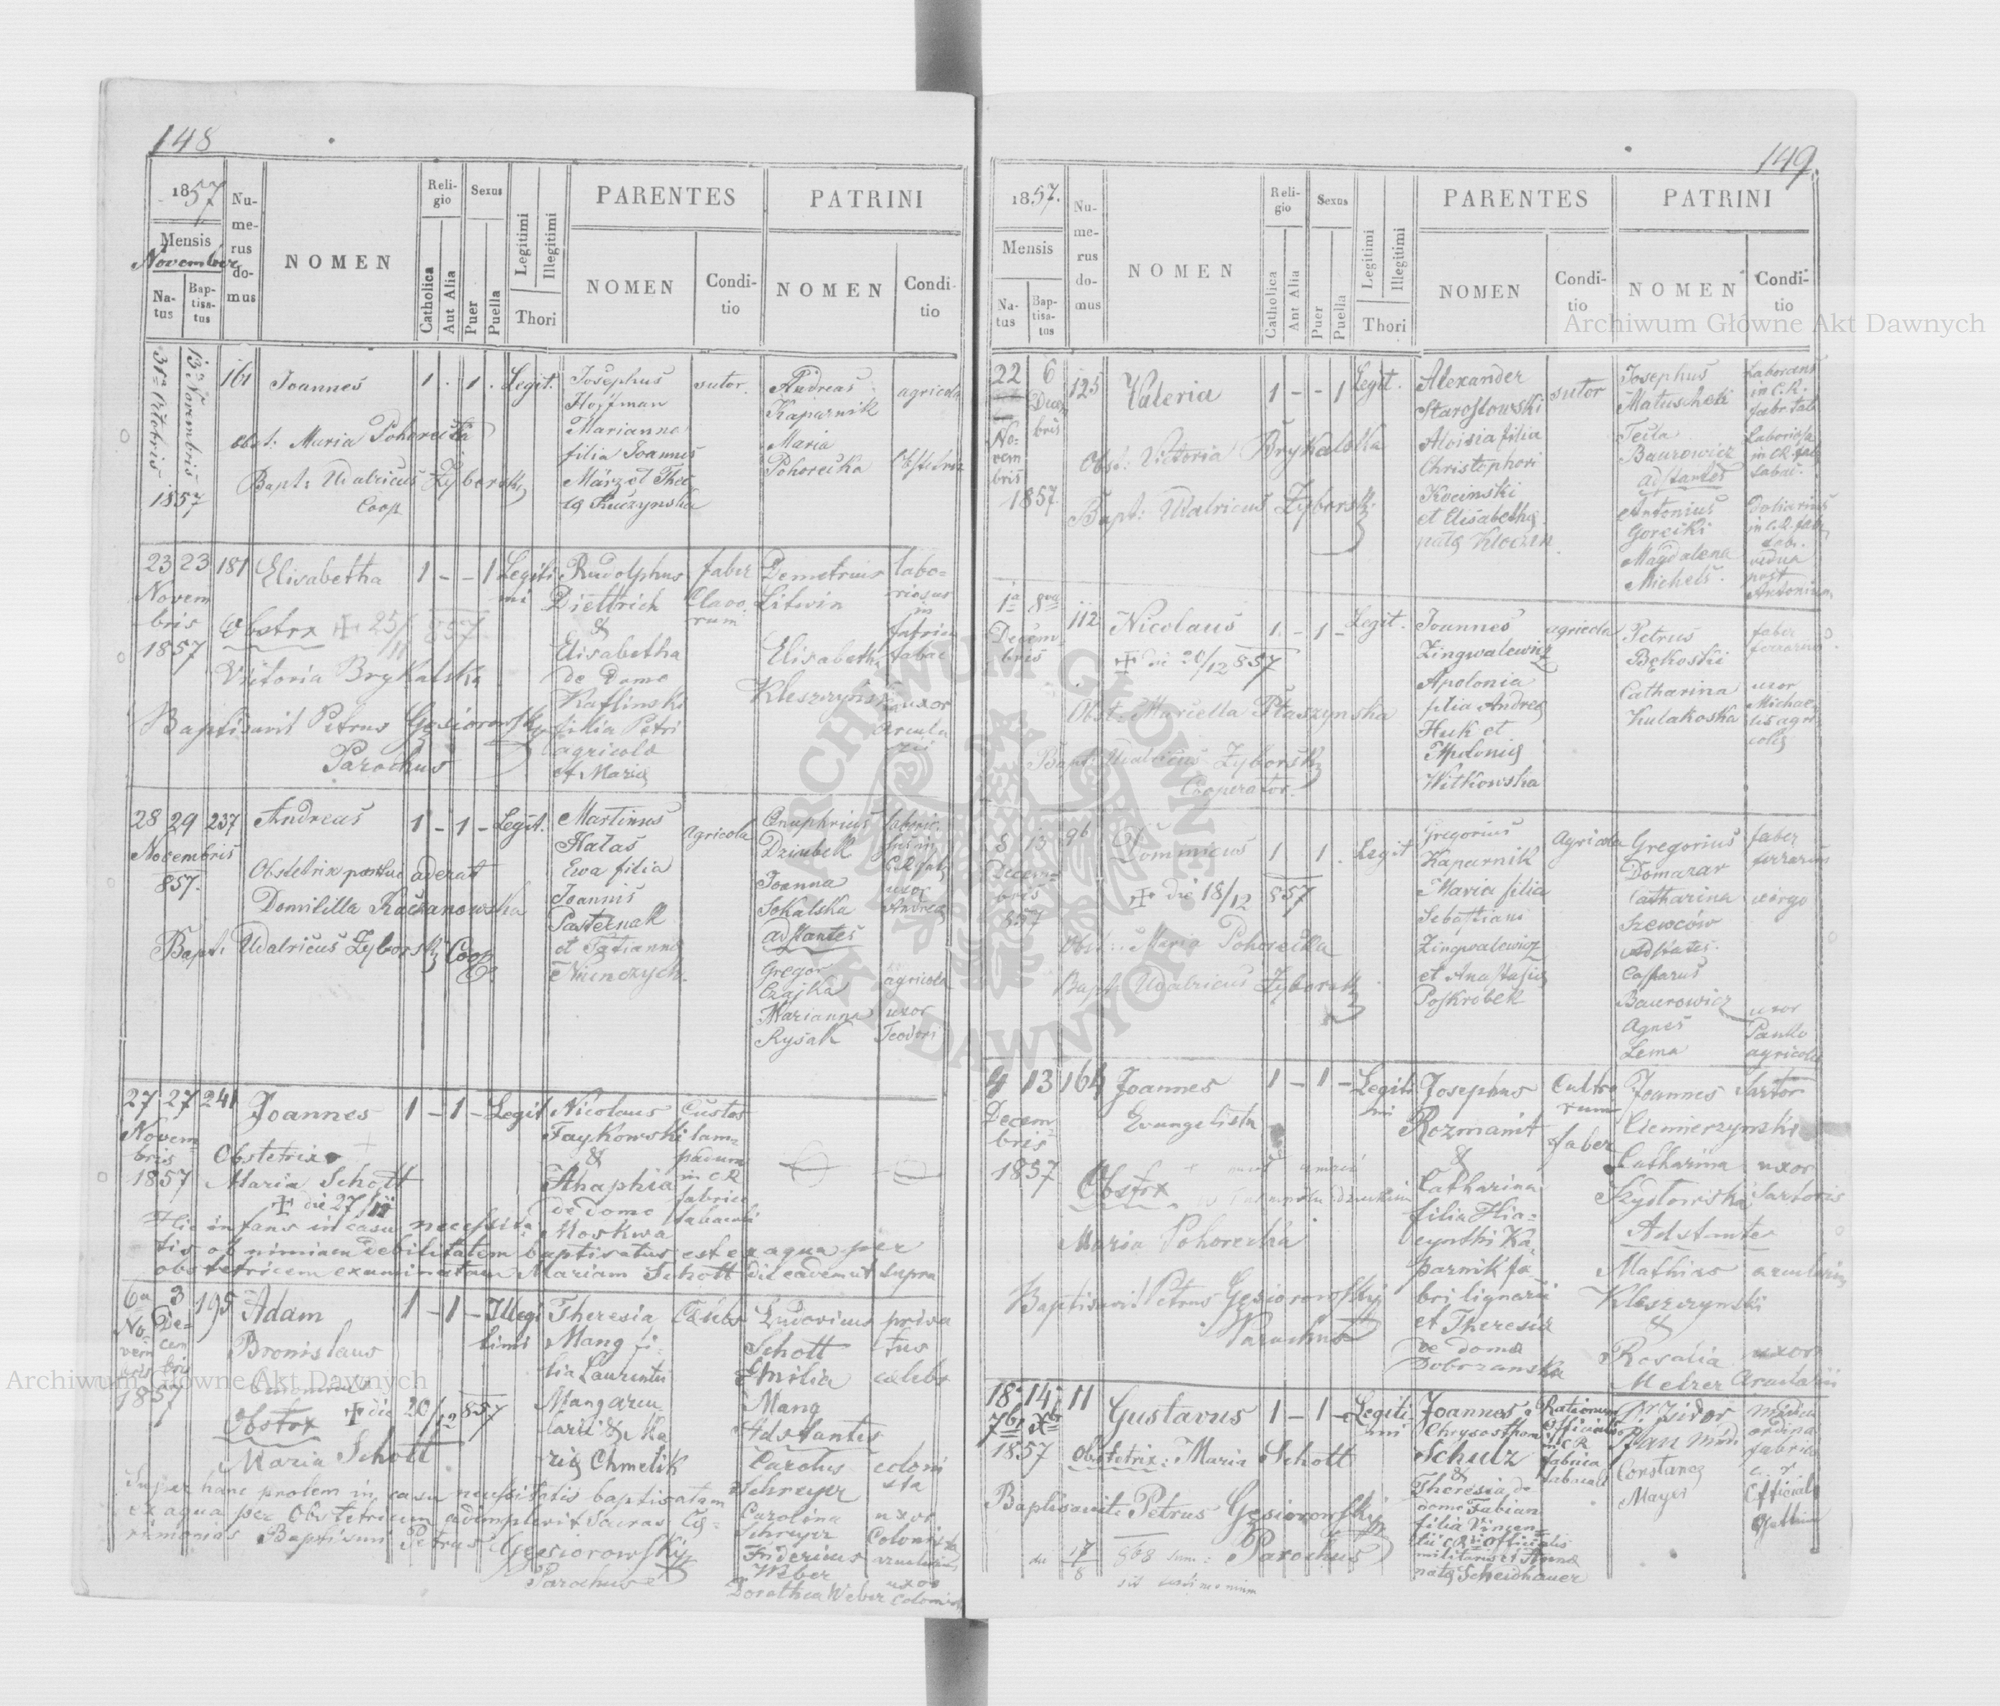 148
1857
Mensis
November
Na-
tus
Bap-
tisa-
tus
Nu-
me-
rus
do-
mus
NOMEN
Reli-
gio
Catholica
Aut Alia
Sexus
Puer
Puella
Legitimi
Illegitimi
Thori
PARENTES
NOMEN
Condi-
tio
PATRINI
NOMEN
Condi-
tio
31a Octobris
13 Novembris
1857
161
Joannes
1 . 1 . Legit.
obst: Maria Pohorecka
Bapt: Udalricus Zyborski
Coop
Josephus
Hoffman
Marianna
filia Joannis
sutor
Andreas
Kaparnik
Maria
Pohorecka
agricola
Obstetrix
23 23 181
Novem
bris
1857
Elisabetha
1 - - 1 Legiti
mi
Obstrx
Victoria Brykalska
Baptisavit Petrus Gąsiorowski
Parochus
Rudolphus
Diettrich
&
Elisabetha
de Domo
Katlinski
filia Petri
agricola
et Maria
faber
clavo
rum
Demetrius
Litwin
Elisabetha
Kleszczyńska
labo-
riosus
in
fabrica
tabac
uxor
arcula
rii
28 29 237
Novembris
857.
Andreas
1 - 1 - Legit.
Obstetrix postac aderat
Domilitta Kaczanowska
Bapt: Udalricus Zyborski Coop.
Martinus
Hałas
Ewa filia
Joannis
Pasternak
et Tatianna
Agricola
Onuphrius
Dziubek
Joanna
Sokalska
adstantes
Gregor
Czajka
Marianna
Rysak
uxor
Andrea
agricola
uxor
Teodori
27 27 241
Novem
bris
1857
Joannes
1 - 1 - Legit
Obstetrix
Maria Schott
die 27/11
Nicolaus
Faykowski
&
Anaphia
de domo
Moskwa
Custos
lam-
padum
in CR
fabrica
tabacali
Hic infans in casu necessita
tis ob nimiam debilitatem baptisatus est ex aqua per
obstetricem examinatam Mariam Schott die eadem ut supra
6a 3 195
No-
vem
bris
De-
cem
bris
1857
Adam
Bronislaus
binominis
1 - 1 - Illegi
timi
Obstrx
die 20/12 857
Maria Schott
Theresia
Mang fi-
lia Laurentii
Mang arcu
larii & Ma
ria Chmelik
Caelebs
Ludovicus
Schott
Emilia
Mang
Adstantes
Carolus
Schreyer
Carolina
Schreyer
Fridericus
Weber
Dorothea Weber
priva
tus
caelebs
coloni
sta
uxor
Colonista
uxor
Colonist
Super hanc prolem in casu necessitatis baptisatam
ex aqua per Obstetricem adimplevit Sacras Ce-
remonias Baptismi Petrus Gąsiorowski
Parochus
149
1857.
Mensis
Na-
tus
Bap-
tisa-
tus
Nu-
me-
rus
do-
mus
NOMEN
Reli-
gio
Catholica
Aut Alia
Sexus
Puer
Puella
Legitimi
Illegitimi
Thori
PARENTES
NOMEN
Condi-
tio
PATRINI
NOMEN
Condi-
tio
22 6 125
No-
vem
bris
Decem
bris
1857.
Valeria
1 - - 1 Legit.
Obst: Victoria Brykalska
Bapt: Udalricus Zyborski
Alexander
Starosłowski
Aloisia filia
Christophori
Kocimski
et Elisabetha
nata
sutor
Josephus
Matuschek
Tecla
Baurowicz
adstantes
Antonius
Gorecki
Magdalena
Michels.
Laborans
in C.R.
fabr tab
vidua
post
Antonium
1a 8va 112
Decem
bris
Nicolaus
1 - 1 - Legit.
die 20/12 857
Obst: Mariella Ptaszynska
Bapt: Udalricus Zyborski
Cooperator.
Joannes
Zingwalewicz
Apolonia
filia Andrea
Huk et
Apolonia
Witkowska
agricola
Petrus
Bękoski
Catharina
Kulakoska
faber
ferrarius.
uxor
Michae
lis agri
cola
8 13 96
Decem-
bris
857
Dominicus
1 1 Legit
die 18/12 857
Obst: Maria Pohorecka
Bapt: Udalricus Zyborski
Gregorius
Kaparnik
Maria filia
Sebastiani
Zingwalewicz
et Anastasia
Poskrobek
Agricola
Gregorius
Domazar
Catharina
Szewców
Adstantes.
Casparus
Baurowicz
Agnes
Lema
faber
ferrarius
virgo
uxor
Pawlo
agricola
4 13 164
Decem
bris
1857
Joannes
Evangelista
1 - 1 - Legiti
mi
Obstrx
Maria Pohorecka
Baptisavit Petrus Gąsiorowski
Parochus
Josephus
Rozmanit
&
Catharina
filia Hia-
cynthi Ka-
parnik fa
bri lignarii
et Theresia
de domo
Dobrzanska
Cultro
rum
faber
Joannes
Ciemierzynski
Catharina
Szydłowska
Adstante
Mathias
Kleszczynski
&
Rosalia
Melzer
Sartor
uxor
Sartoris
arcularius
uxor
Arcularii
18 14 11
7br Xbr
1857
Gustavus
1 - 1 - Legiti
mi
Obstetrix: Maria Schott
Baptisavit Petrus Gąsiorowski
Parochus
17/8 868
Joannes
Chrysosthom
Schulz
&
Theresia de
domo Fabian
filia Vincen-
tii CR Officialis
militaris et Anna
nata Scheidhauer
Rationum
Officialis
in CR
fabrica
tabacali
Isidor
Constancia
Mayer
Archiwum Główne Akt Dawnych
Archiwum Główne Akt Dawnych
ARCHIWUM GŁÓWNE AKT DAWNYCH